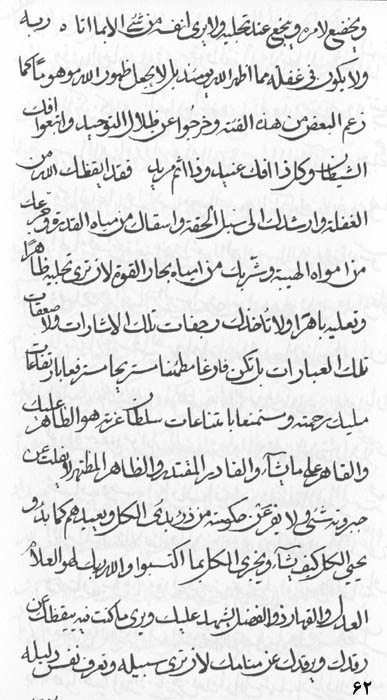 ويخضع لامره ويخضع عند تجليه ولا يرى لنفسه من شيء الا بما اتاه ربه
ولا يكون في غفلة مما اظهر الله وصنعه بل لا يجعل ظهور الله موهوما كما
زعم البعض من هذه الفئة وخرجوا عن ظلال التوحيد واتبعوا افك
الشيطان وكل ذا افك عنيد وذا اثم فقد ايقظك الله من
الغفلة وارشدك الى سبل الحقة واسقاك من مياه القدرة و
من امواه الهيبة وشربك من مياه بحار القوة لان ترى تجليه ظاهرا
وتعليه باهرا ولا تاخذك رجفات تلك الاشارات ولا صعقات
تلك العبارات بل تكن فارغا مطمئنا مستريحا مسترفعا بايقاعات
مليك رحمته ومستمعا بامتناعات سلطان عزته هو الظاهر عليك
والقاهر على ما يشاء والقادر المقتدر والظاهر المظهر لا يفلت عن
جبروته شيء ولا تفر عن حكومته من ذرة يبدئ الكل ويعيدهم كما بدء و
يحيي الكل كيف يشاء ويجزي الكل بما اكتسبوا والله ربك لهو العلام
العدل والقهار ذو الفضل ليشهد عليك ويرى ما كنت فيه ييقظك عن
رقدك ويرقدك عن منامك لان ترى سبيله وتعرف نفس دليله
٦٢